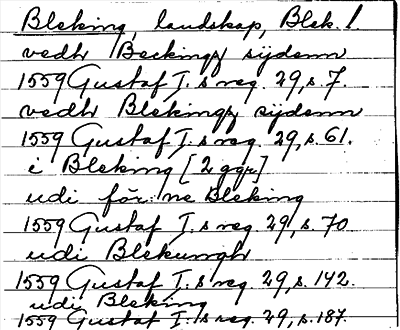 Bleking, landskap, Blek. l.
vedh Beckingz sijdenn
1559 Gustaf I.s reg. 29, s. 7.
vedh Blekingz sijdenn
1559 Gustaf I.s reg. 29, s. 61.
i Bleking [2 ggr]
udi för:ne Bleking
1559 Gustaf I.s reg. 29, s. 70
udi Blekungh
1559 Gustaf I.s reg. 29, s. 142.
udi Bleking
1559 Gustaf I.s reg. 29, s. 187.